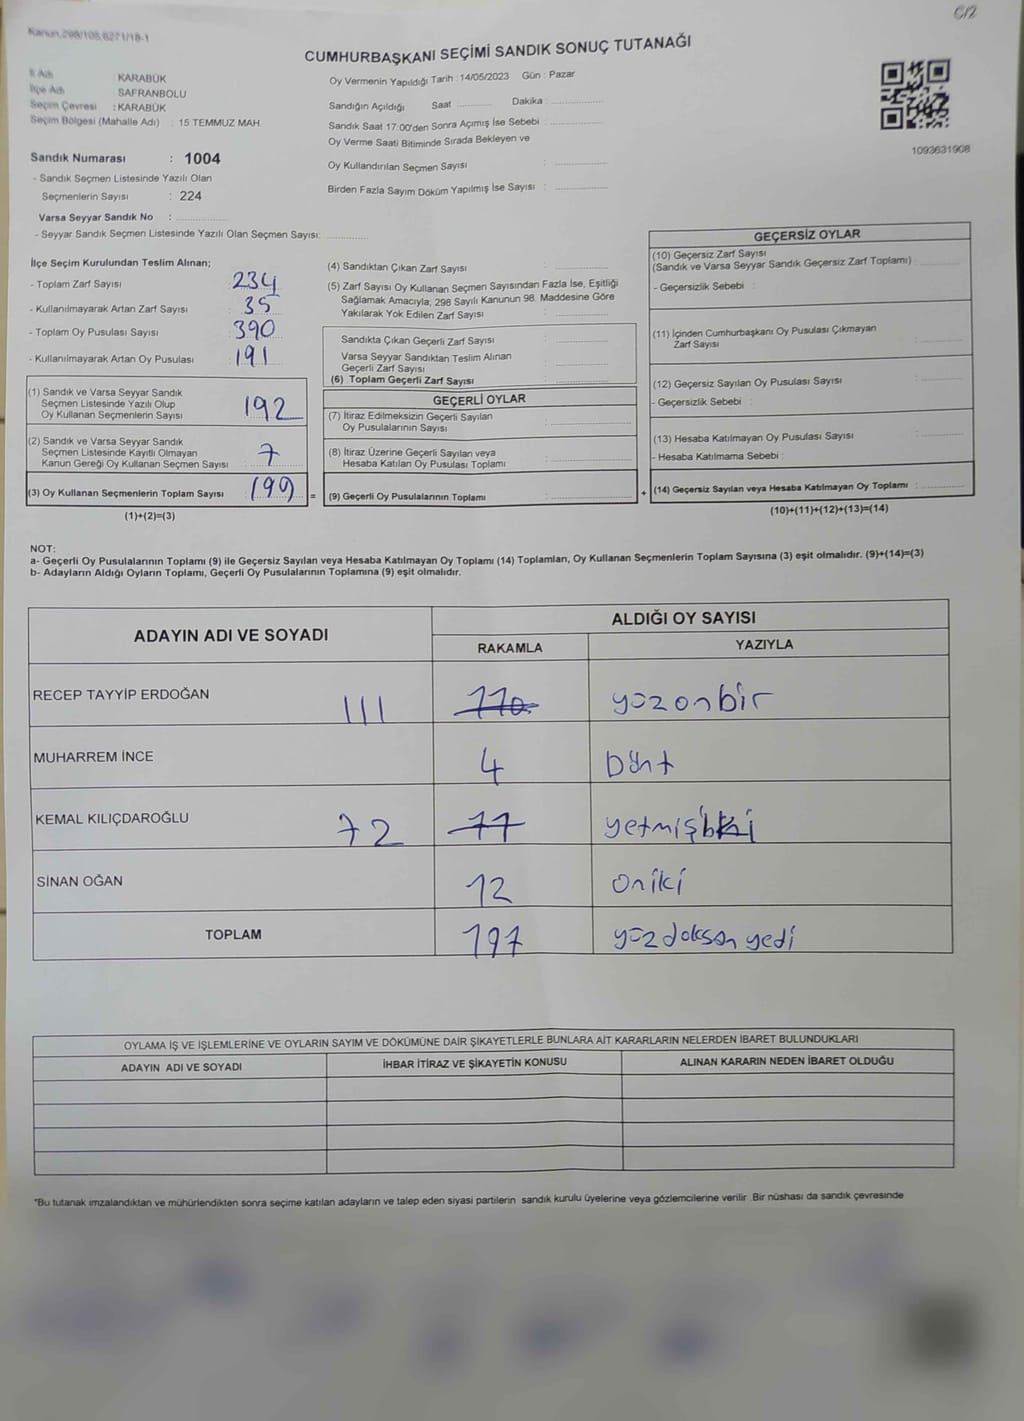 C/2
Kanun.298/105,6271/18-1
CUMHURBAŞKANI SEÇİMİ SANDIK SONUÇ TUTANAĞI
İl Adı : KARABÜK
İlçe Adı : SAFRANBOLU
Seçim Çevresi : KARABÜK
Seçim Bölgesi (Mahalle Adı) : 15 TEMMUZ MAH.
Oy Vermenin Yapıldığı Tarih : 14/05/2023 Gün : Pazar
Sandığın Açıldığı Saat Dakika :
Sandık Saat 17:00'den Sonra Açımış İse Sebebi :
Oy Verme Saati Bitiminde Sırada Bekleyen ve
Oy Kullandırılan Seçmen Sayısı :
Birden Fazla Sayım Döküm Yapılmış İse Sayısı :
1093631908
Sandık Numarası : 1004
- Sandık Seçmen Listesinde Yazılı Olan
Seçmenlerin Sayısı : 224
Varsa Seyyar Sandık No :
- Seyyar Sandık Seçmen Listesinde Yazılı Olan Seçmen Sayısı:
İlçe Seçim Kurulundan Teslim Alınan;
- Toplam Zarf Sayısı 234
- Kullanılmayarak Artan Zarf Sayısı 35
- Toplam Oy Pusulası Sayısı 390
- Kullanılmayarak Artan Oy Pusulası 191
(1) Sandık ve Varsa Seyyar Sandık
Seçmen Listesinde Yazılı Olup
Oy Kullanan Seçmenlerin Sayısı 192
(2) Sandık ve Varsa Seyyar Sandık
Seçmen Listesinde Kayıtlı Olmayan
Kanun Gereği Oy Kullanan Seçmen Sayısı 7
(3) Oy Kullanan Seçmenlerin Toplam Sayısı 199 =
(1)+(2)=(3)
(4) Sandıktan Çıkan Zarf Sayısı :
(5) Zarf Sayısı Oy Kullanan Seçmen Sayısından Fazla İse, Eşitliği
Sağlamak Amacıyla; 298 Sayılı Kanunun 98. Maddesine Göre
Yakılarak Yok Edilen Zarf Sayısı :
Sandıkta Çıkan Geçerli Zarf Sayısı :
Varsa Seyyar Sandıktan Teslim Alınan
Geçerli Zarf Sayısı :
(6) Toplam Geçerli Zarf Sayısı :
GEÇERLİ OYLAR
(7) İtiraz Edilmeksizin Geçerli Sayılan
Oy Pusulalarının Sayısı :
(8) İtiraz Üzerine Geçerli Sayılan veya
Hesaba Katılan Oy Pusulası Toplamı :
(9) Geçerli Oy Pusulalarının Toplamı : +
GEÇERSİZ OYLAR
(10) Geçersiz Zarf Sayısı
(Sandık ve Varsa Seyyar Sandık Geçersiz Zarf Toplamı) :
- Geçersizlik Sebebi :
(11) İçinden Cumhurbaşkanı Oy Pusulası Çıkmayan
Zarf Sayısı :
(12) Geçersiz Sayılan Oy Pusulası Sayısı :
- Geçersizlik Sebebi :
(13) Hesaba Katılmayan Oy Pusulası Sayısı :
- Hesaba Katılmama Sebebi :
(14) Geçersiz Sayılan veya Hesaba Katılmayan Oy Toplamı :
(10)+(11)+(12)+(13)=(14)
NOT:
a- Geçerli Oy Pusulalarının Toplamı (9) ile Geçersiz Sayılan veya Hesaba Katılmayan Oy Toplamı (14) Toplamları, Oy Kullanan Seçmenlerin Toplam Sayısına (3) eşit olmalıdır. (9)+(14)=(3)
b- Adayların Aldığı Oyların Toplamı, Geçerli Oy Pusulalarının Toplamına (9) eşit olmalıdır.
ADAYIN ADI VE SOYADI
ALDIĞI OY SAYISI
RAKAMLA YAZIYLA
RECEP TAYYİP ERDOĞAN 111 110 yüzonbir
MUHARREM İNCE 4 Dört
KEMAL KILIÇDAROĞLU 72 77 yetmiş
SİNAN OĞAN 12 oniki
TOPLAM 197 yüzdoksan yedi
OYLAMA İŞ VE İŞLEMLERİNE VE OYLARIN SAYIM VE DÖKÜMÜNE DAİR ŞİKAYETLERLE BUNLARA AİT KARARLARIN NELERDEN İBARET BULUNDUKLARI
ADAYIN ADI VE SOYADI İHBAR İTİRAZ VE ŞİKAYETİN KONUSU ALINAN KARARIN NEDEN İBARET OLDUĞU
"Bu tutanak imzalandıktan ve mühürlendikten sonra seçime katılan adayların ve talep eden siyasi partilerin sandık kurulu üyelerine veya gözlemcilerine verilir. Bir nüshası da sandık çevresinde